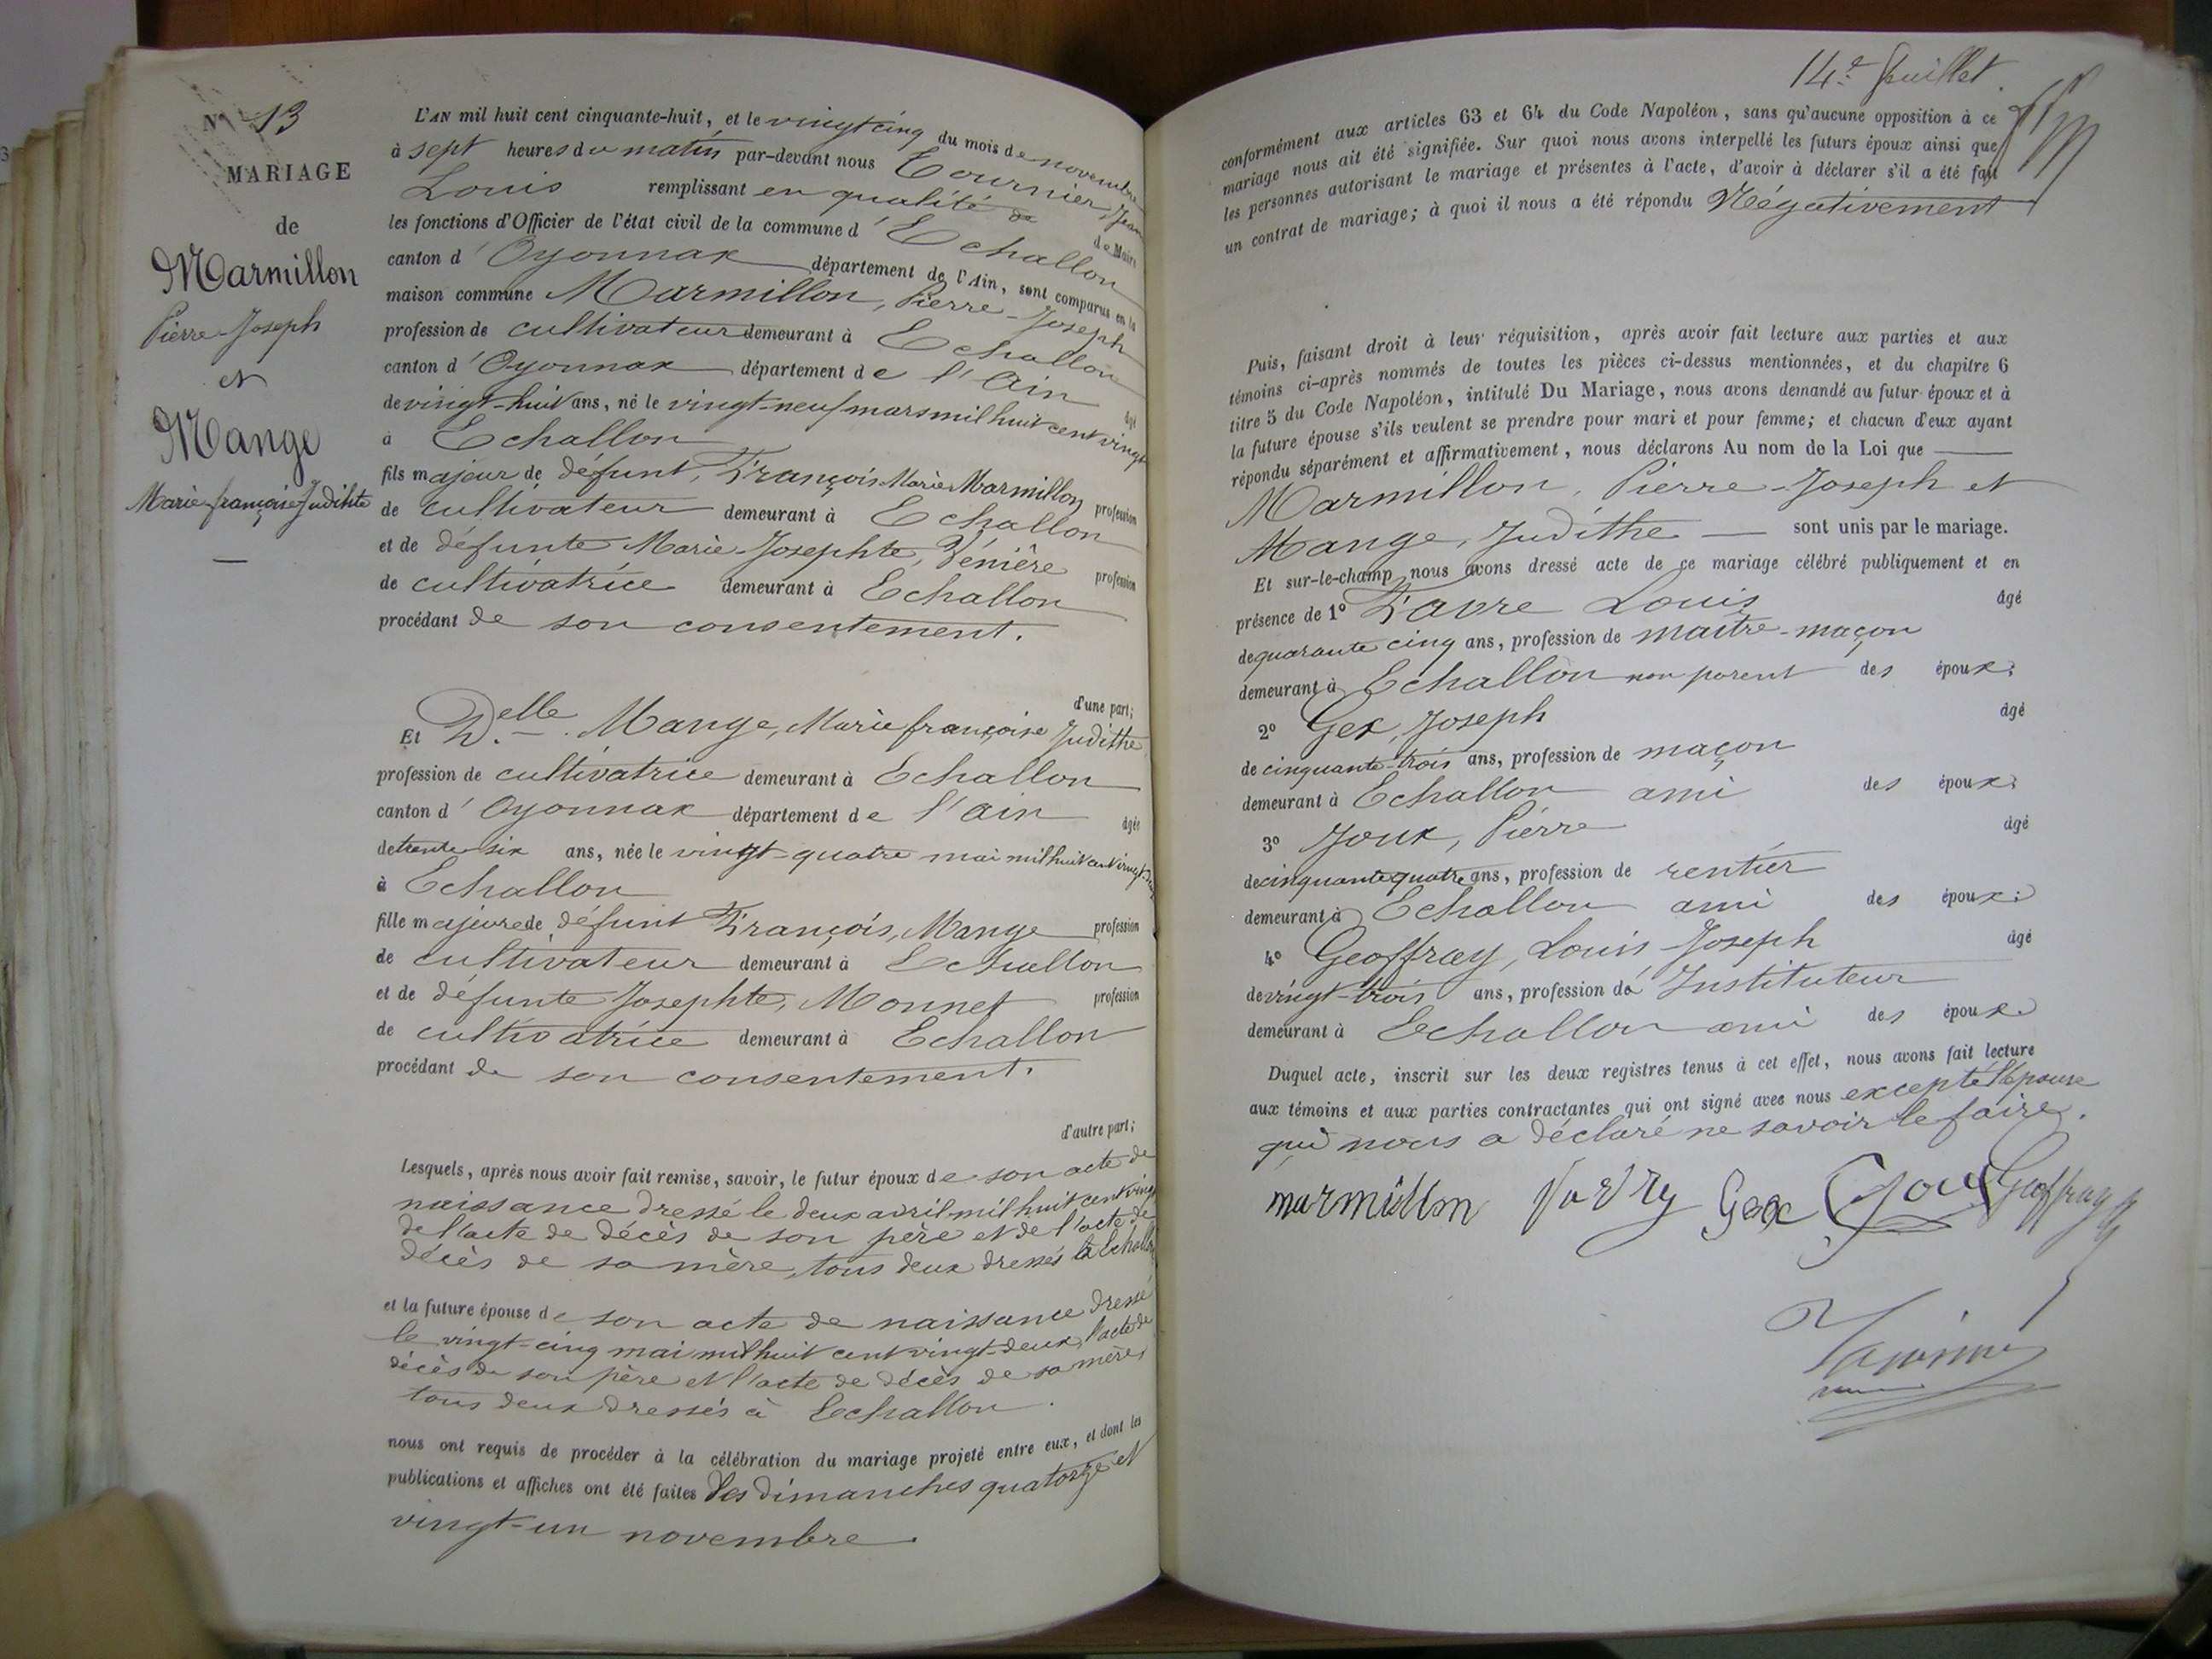 Nº 13
MARIAGE
de
Marmillon
Pierre-Joseph
et
Mange
Marie françoise Judithe
L'AN mil huit cent cinquante-huit, et le vingt cinq du mois de novembre
à sept heures du matin par-devant nous Tournier, Jean
Louis remplissant en qualité de de Maire
les fonctions d'Officier de l'état civil de la commune d'Echallon
canton d'Oyonnax département de l'Ain, sont comparus en la
maison commune Marmillon, Pierre-Joseph
profession de cultivateur demeurant à Echallon
canton d'Oyonnax département de l'Ain âgé
de vingt-huit ans, né le vingt-neuf mars mil huit cent vingt
à Echallon
fils majeur de défunt, François Marie Marmillon profession
de cultivateur demeurant à Echallon
et de défunte Marie-Josephte, Vénière profession
de cultivatrice demeurant à Echallon
procédant de son consentement.
d'une part;
Et Delle. Mange, Marie françoise Judithe
profession de cultivatrice demeurant à Echallon
canton d'Oyonnax département de l'Ain âgée
de trente six ans, née le vingt-quatre mai mil huit cent vingt-deux
à Echallon
fille majeure de défunt François, Mange profession
de cultivateur demeurant à Echallon
et de défunte Josephte, Monnet profession
de cultivatrice demeurant à Echallon
procédant de son consentement.
d'autre part;
Lesquels, après nous avoir fait remise, savoir, le futur époux de son acte de
naissance dressé le deux avril mil huit cent vingt
de l'acte de décès de son père et de l'acte de
décès de sa mère, tous deux dressés à Echallon
et la future épouse de son acte de naissance dressé
le vingt-cinq mai mil huit cent vingt-deux, l'acte de
décès de son père et l'acte de décès de sa mère,
tous deux dressés à Echallon.
nous ont requis de procéder à la célébration du mariage projeté entre eux, et dont les
publications et affiches ont été faites les dimanches quatorze et
vingt-un novembre.
14e feuillet
conformément aux articles 63 et 64 du Code Napoléon, sans qu'aucune opposition à ce
mariage nous ait été signifiée. Sur quoi nous avons interpellé les futurs époux ainsi que
les personnes autorisant le mariage et présentes à l'acte, d'avoir à déclarer s'il a été fait
un contrat de mariage; à quoi il nous a été répondu Négativement
Puis, faisant droit à leur réquisition, après avoir fait lecture aux parties et aux
témoins ci-après nommés de toutes les pièces ci-dessus mentionnées, et du chapitre 6
titre 5 du Code Napoléon, intitulé Du Mariage, nous avons demandé au futur époux et à
la future épouse s'ils veulent se prendre pour mari et pour femme; et chacun d'eux ayant
répondu séparément et affirmativement, nous déclarons Au nom de la Loi que
Marmillon, Pierre-Joseph et
Mange, Judithe sont unis par le mariage.
Et sur-le-champ nous avons dressé acte de ce mariage célébré publiquement et en
présence de 1º Favre Louis âgé
de quarante cinq ans, profession de maître-maçon
demeurant à Echallon non parent des époux.
2º Gex, Joseph âgé
de cinquante-trois ans, profession de maçon
demeurant à Echallon ami des époux.
3º Joux, Pierre âgé
de cinquante quatre ans, profession de rentier
demeurant à Echallon ami des époux.
4º Geoffray, Louis Joseph âgé
de vingt-trois ans, profession de Instituteur
demeurant à Echallon ami des époux.
Duquel acte, inscrit sur les deux registres tenus à cet effet, nous avons fait lecture
aux témoins et aux parties contractantes qui ont signé avec nous excepté l'épouse
qui nous a déclaré ne savoir le faire.
marmillon Gex Joux Geoffray